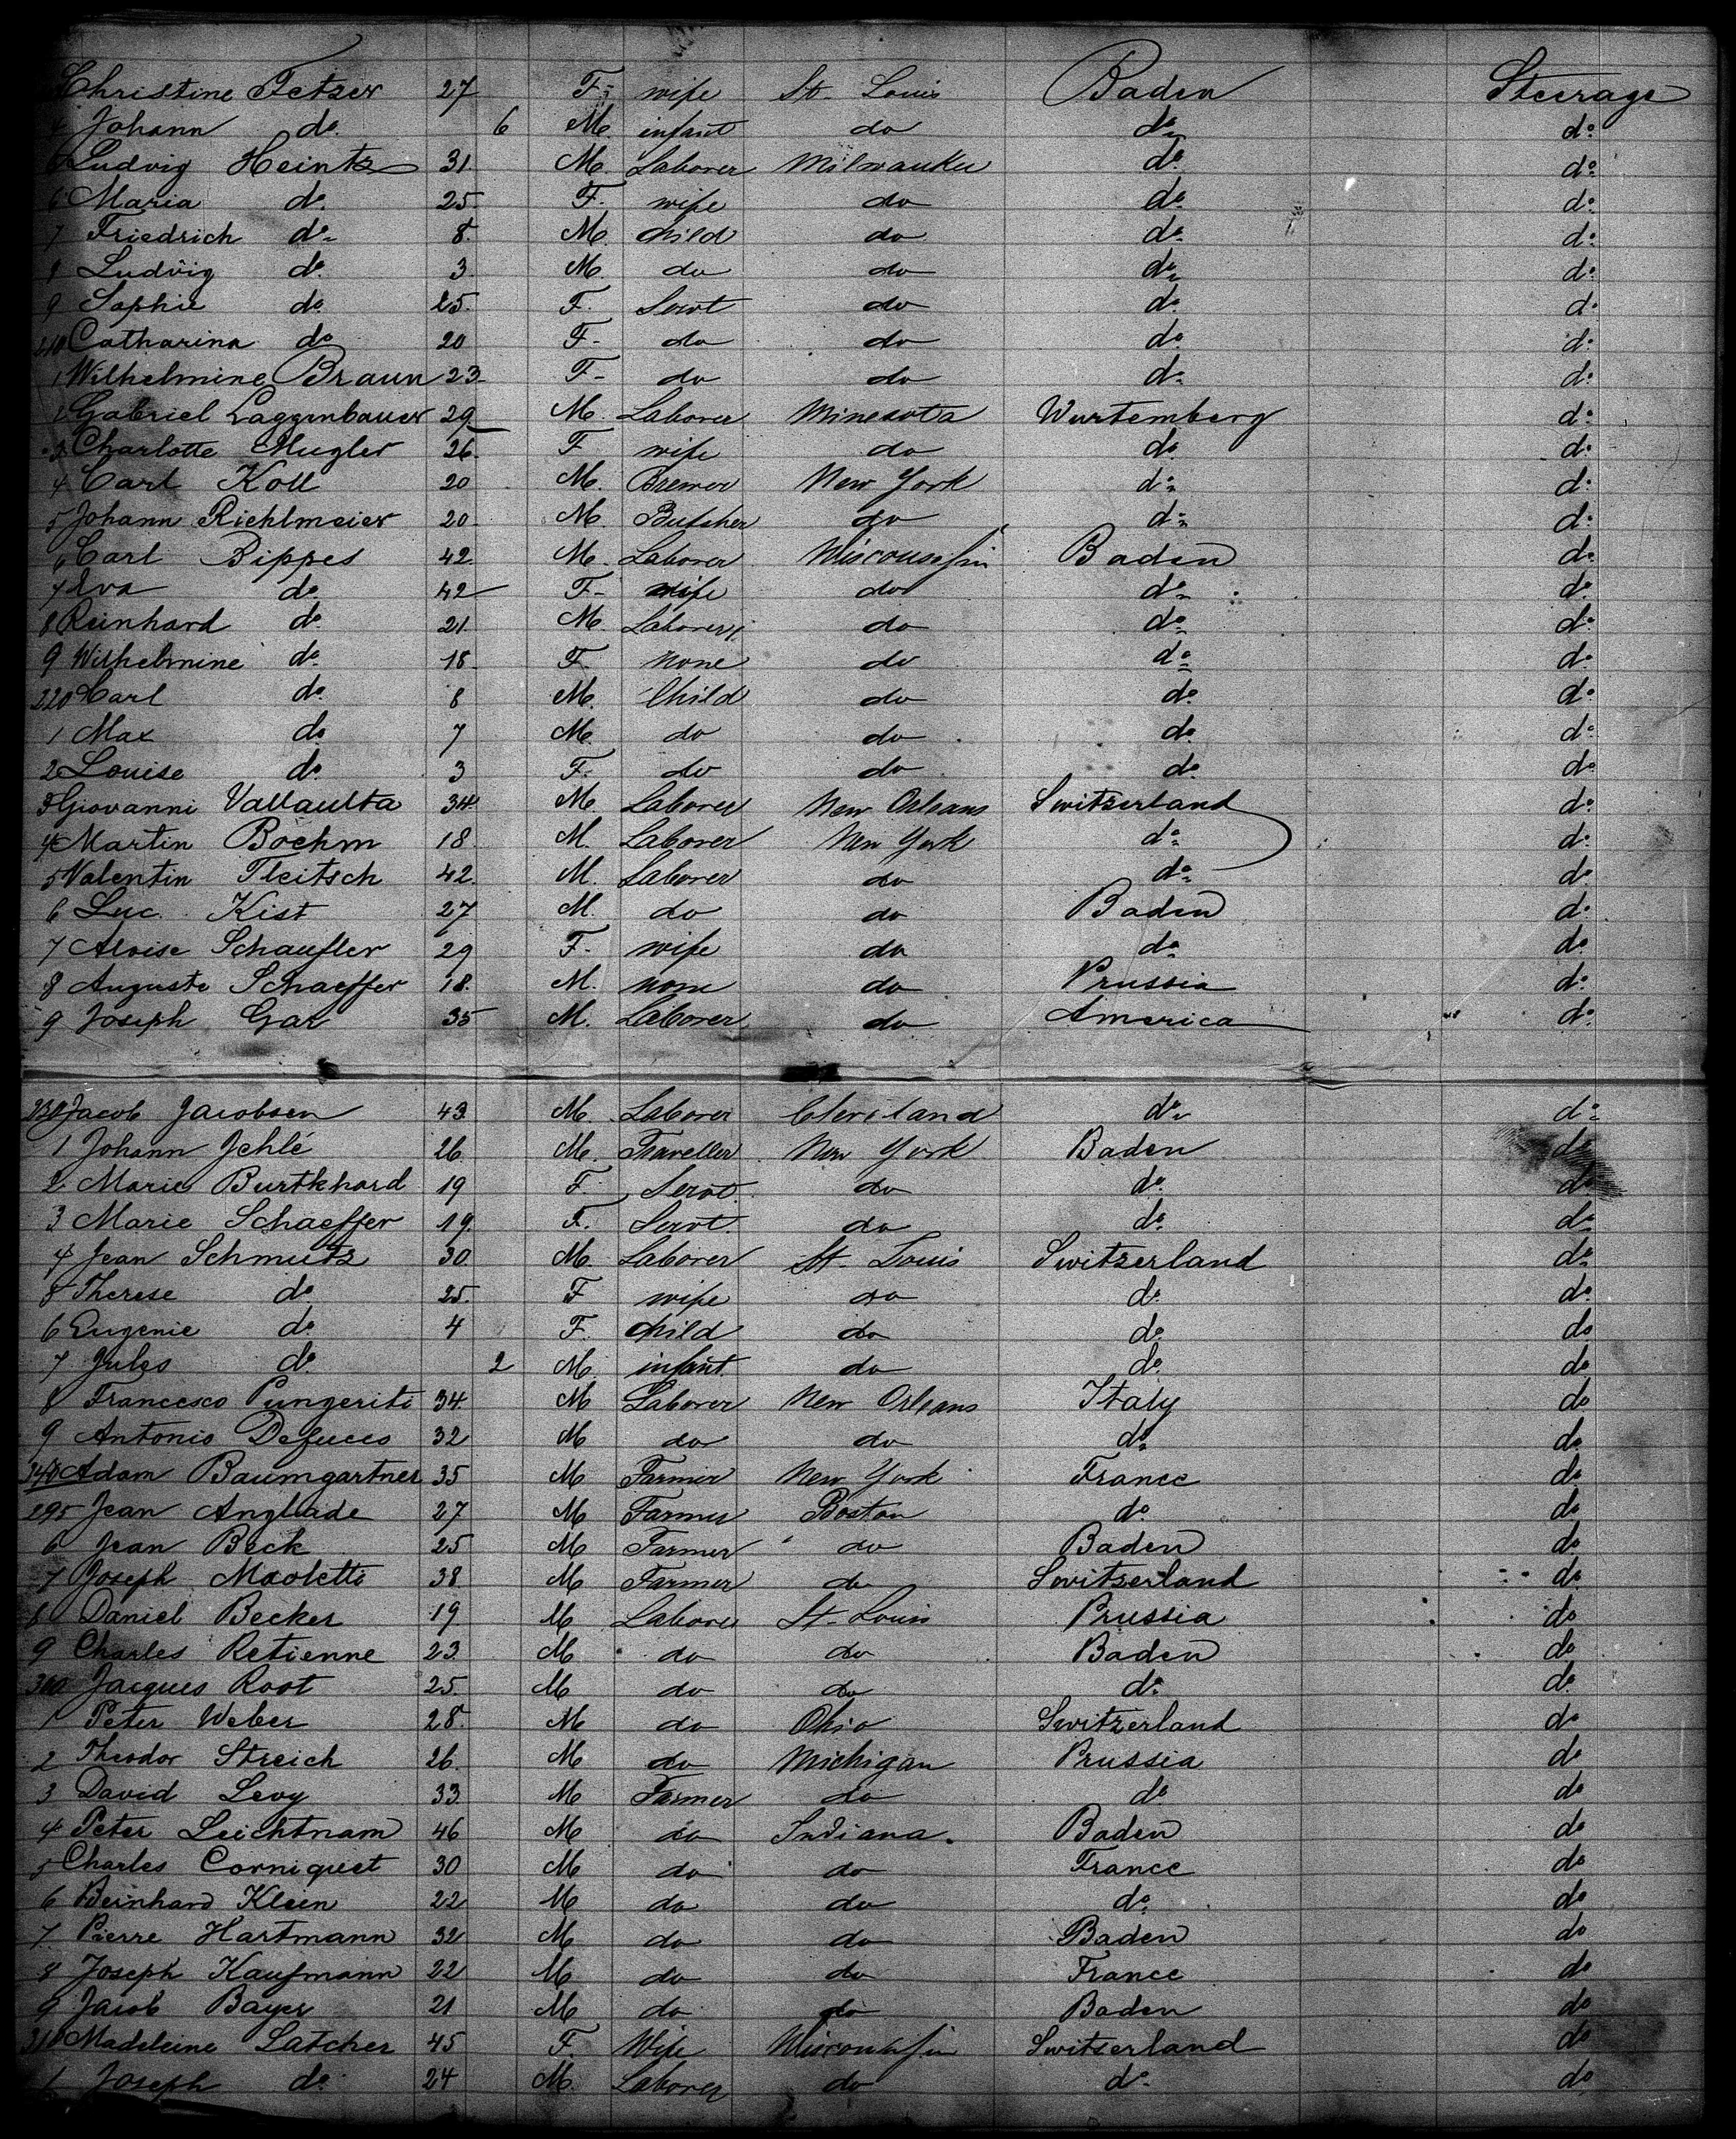 Christine Fetzer 27 F. wife St Louis Baden Steerage
4 Johann do. 6 M. infant do do do
Ludvig Heintz 31. M. Laborer Milwaukee do do
6 Maria do. 25 F. wife do do do
7 Friedrich do 8. M. Child do do do
8 Ludvig do. 3 M. do do do do
9 Sophie do. 25. F. Servt do do do
210 Catharina do 20 F. do do do do
1 Wilhelmine Braun 23. F. do do do do
2 Gabriel Laggenbauer 29 M. Laborer Minesota Wurtemberg do
3 Charlotte Mugler 26. F wife do do do
4 Carl Koll 20 M. Brewer New York do do
5 Johann Riehlmeier 20. M. Butcher do do do
6 Carl Bippes 42. M. Laborer Wisconssin Baden do
7 Eva do 42 F. wife do do do
8 Reinhard do 21. M. Laborer do do do
9 Wilhelmine do 18. F. none do do do
220 Carl do. 8 M. Child do do do
1 Max do 7 M. do do do do
2 Louise do. 3 F. do do do do
3 Giovanni Vallaulta 34. M. Laborer New Orleans Switzerland do
4 Martin Boehm 18. M. Laborer New York do do
5 Valentin Fleitsch 42. M. Laborer do do do
6 Luc. Kist 27 M. do do Baden do
7 Aloise Schaufler 29 F. wife do do do
8 Auguste Schaeffer 18. M. none do Prussia do
9 Joseph Gar 35 M. Laborer do America do
230 Jacob Jacobsen 43. M. Laborer Cleveland do do
1 Johann Jehlé 26. M. Traveller New York Baden do
2 Marie Burtkhard 19 F. Servt. do do do
3 Marie Schaeffer 19. F. Servt. do do do
4 Jean Schmutz 30. M. Laborer St. Louis Switzerland do
5 Therese do 25. F wife do do do
6 Eugenie do. 4 F. Child do do do
7 Jules do. 2 M. infant. do do do
8 Francesco Pungeriti 34. M Laborer New Orleans Italy do
9 Antonio Defucco 32 M do do do do
240 Adam Baumgartner 35 M Farmer New York France do
295 Jean Anglade 27 M Farmer Boston do do
6 Jean Beck 25 M Farmer do Baden do
7 Joseph Maoletti 38. M Farmer do Switzerland do
8 Daniel Becker 19 M Laborer St. Louis Prussia do
9 Charles Retienne 23. M do do Baden do
300 Jacques Root 25 M do do do do
1 Peter Weber 28. M do Ohio Switzerland do
2 Theodor Streich 26. M do Michigan Prussia do
3 David Levy 33. M Farmer do do do
4 Peter Leichtnam 46 M do Indiana. Baden do
5 Charles Corniquet 30 M do do France do
6 Bernhard Klein 22 M do do do do
7 Pierre Hartmann 32 M do do Baden do
8 Joseph Kaufmann 22 M do do France do
9 Jacob Bayer 21 M do do Baden do
310 Madeleine Latcher 45 F. Wife Wisconssin Switzerland do
1 Joseph do. 24 M. Laborer do do do